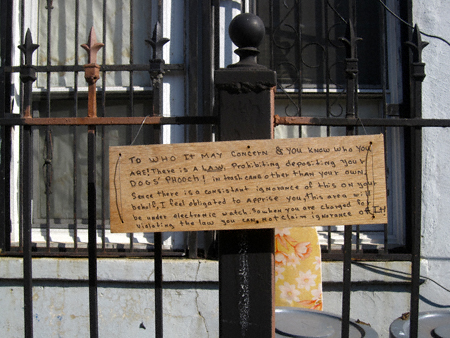 TO WHO IT MAY CONCERN & YOU KNOW WHO YOU
ARE! THERE IS A LAW, PROHIBITING DEPOSITING YOUR
DOGS' PHOOCH! IN TRASH CANS OTHER THAN YOUR OWN.
SINCE THERE IS A CONSISTANT IGNORANCE OF THIS ON YOUR
BEHALF, I FEEL OBLIGATED TO APPRISE YOU, THIS AREA WILL
BE UNDER ELECTRONIC WATCH. SO WHEN YOU ARE CHARGED FOR
VIOLATING THE LAW YOU CAN NOT CLAIM IGNORANCE OF IT!